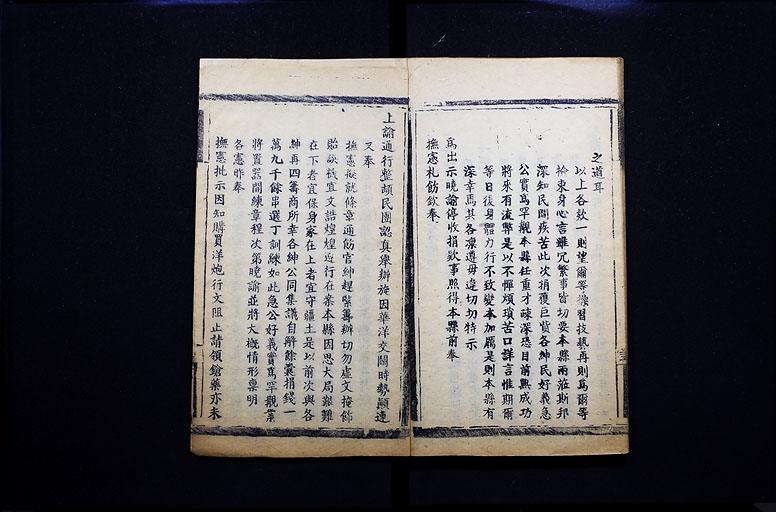 之道耳
以上各欵一則望爾等操習技藝再則爲爾等
捡束身心言雖冗繁事皆切要本縣兩蒞斯邦
深知民間疾苦此次捐穫巨貲各紳民好義急
公實爲罕觀本縣任重才疎深恐目前無成功
將來有流幣是以不憚煩瑣苦口詳言惟期爾
等日後身體力行不致變本加厲是則本縣有
深幸焉其各凛遵毋違切切特示
爲出示曉諭停收捐欵事照得本縣前奉
撫憲札飭欽奉
上諭通行整頓民團認真舉辦旋因華洋交鬨時勢顛連
又奉
撫憲擬就條章通飭官紳趕緊籌辦切勿虛文掩飾
貽誤機宜文誥煌煌近行在案本縣因思大局艱難
在下者宜保身家在上者宜守疆土是以前次與各
紳再四籌商所幸各紳公同集議自解餘囊捐錢一
萬九千餘串選丁訓練如此急公好義實爲罕觀業
將置器開練章程次第曉諭並將大概情形稟明
各憲昨奉
撫憲批示因知購買洋炮行文阻止請領鎗藥亦未